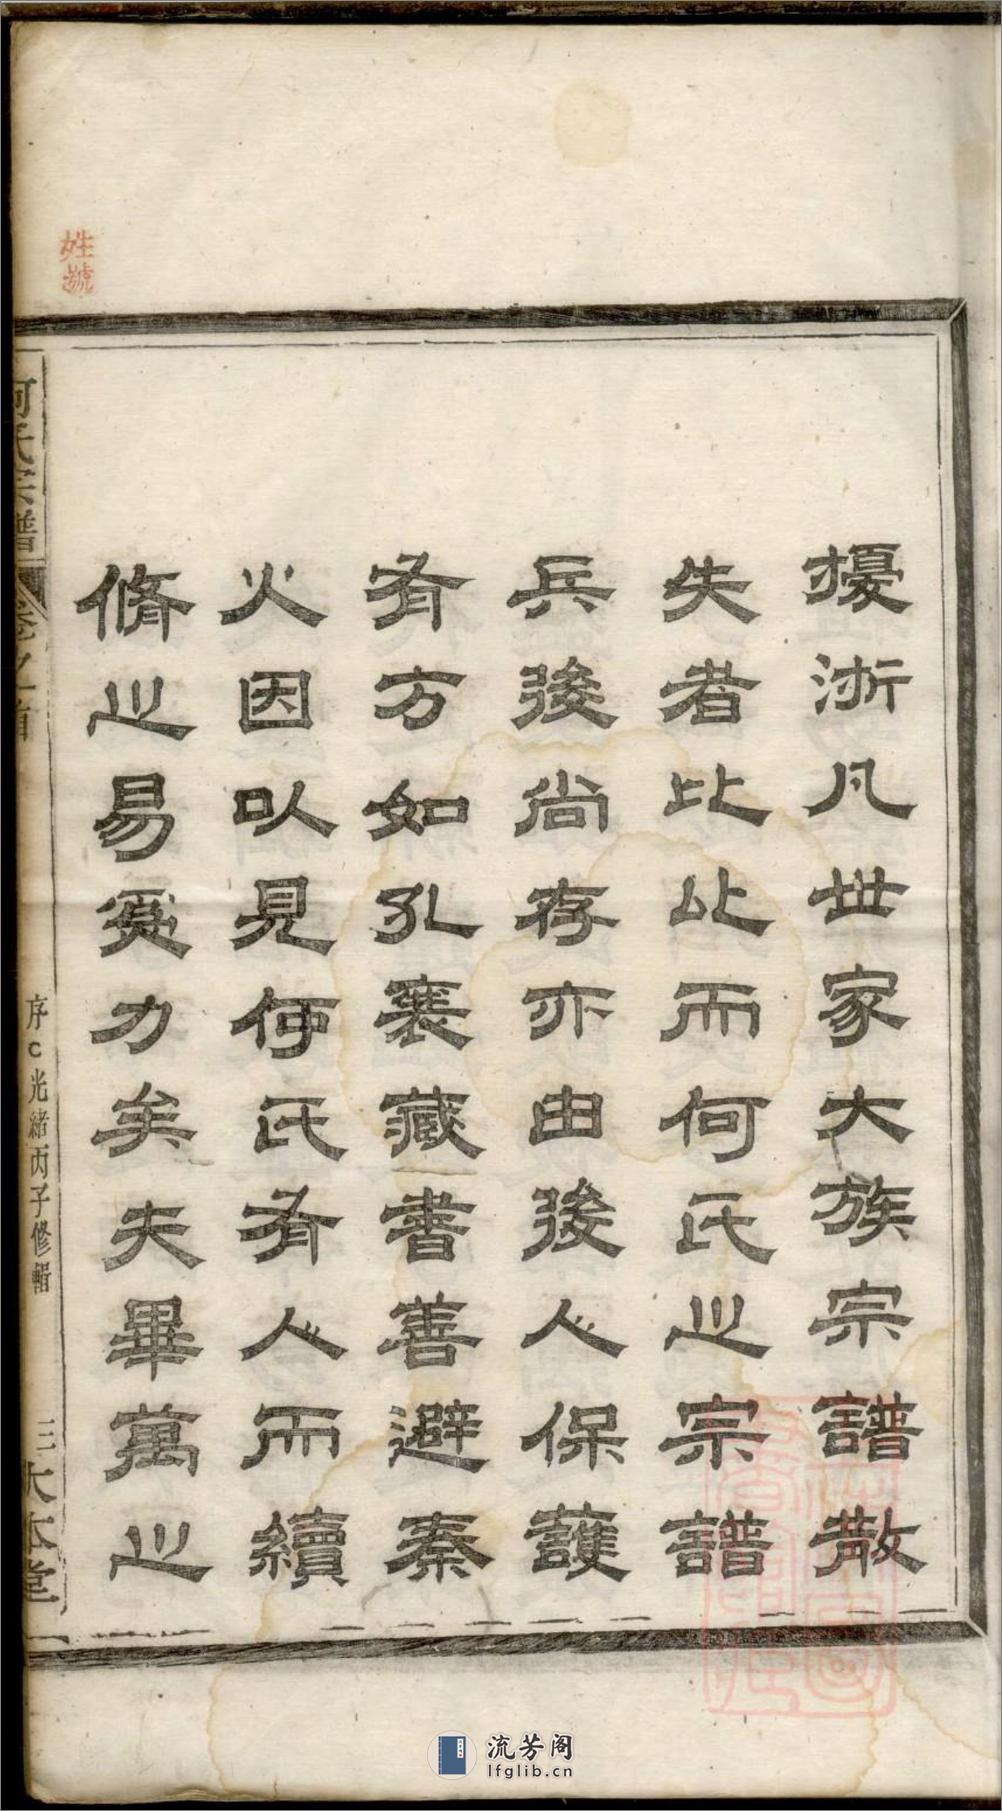 擾浙凡世家大族宗譜散
失者比比而何氏之宗譜
兵後尚存亦由後人保護
有方如孔襄藏書善避秦
火因以見何氏有人而續
脩之易爲力矣夫畢萬之
何氏宗譜
卷之首
序
光緒丙子修輯
三
大本堂
姓號
流芳阁
lfglib.cn